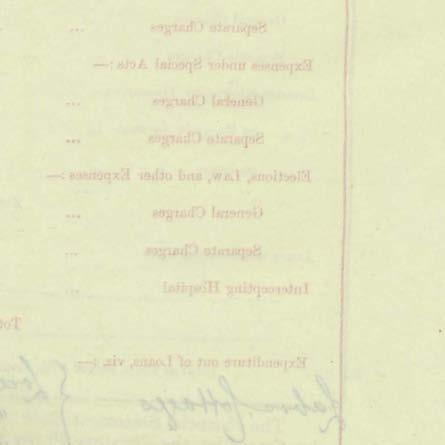 Separate Charges ...
Expenses under Special Acts :—
General Charges ...
Separate Charges ...
Elections, Law, and other Expenses :—
General Charges ...
Separate Charges ...
Intercepting Hospital ...
Expenditure out of Loans, viz. :—